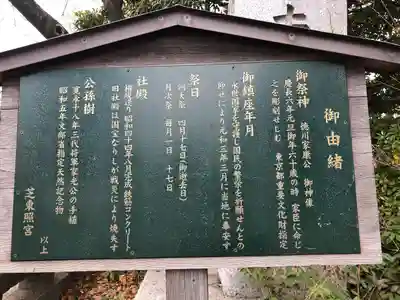 御由緒
御祭神 徳川家康公 御神像
慶長六年元旦御年六十歳の時 家臣に命じ
之を彫刻せしむ 東京都重要文化財指定
御鎮座年月
永世国家を守護し国民の繁栄を祈願せんとの
仰せにより元和三年三月に当地に奉安す
祭日
例大祭 四月十七日(御命日)
月次祭 毎月一日 十七日
社殿
権現造り 昭和四十四年八月完成 鉄筋コンクリート。
旧社殿は国宝なりしが戦災により焼失す
公孫樹
寛永十八年三代将軍家光公の手植
昭和五年文部省指定天然記念物
以上
芝東照宮